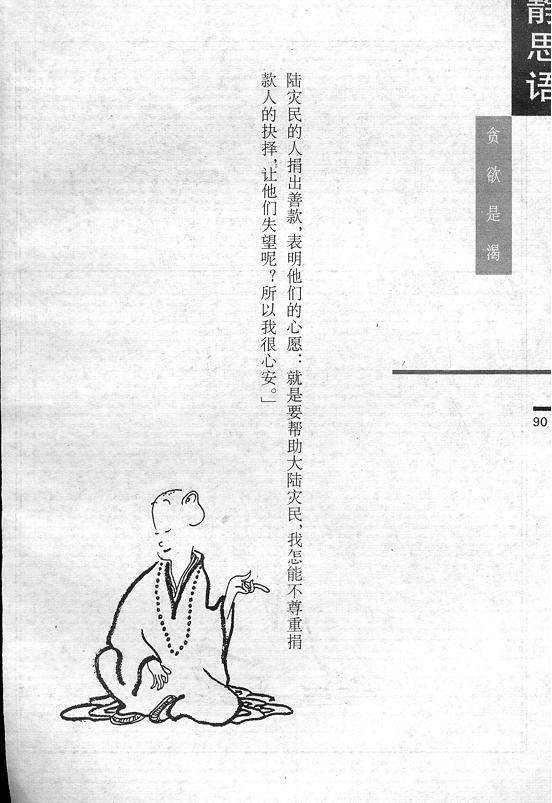 静思语
贪欲是渴
90
陆灾民的人捐出善款，表明他们的心愿：就是要帮助大陆灾民，我怎能不尊重捐
款人的抉择，让他们失望呢？所以我很心安。」